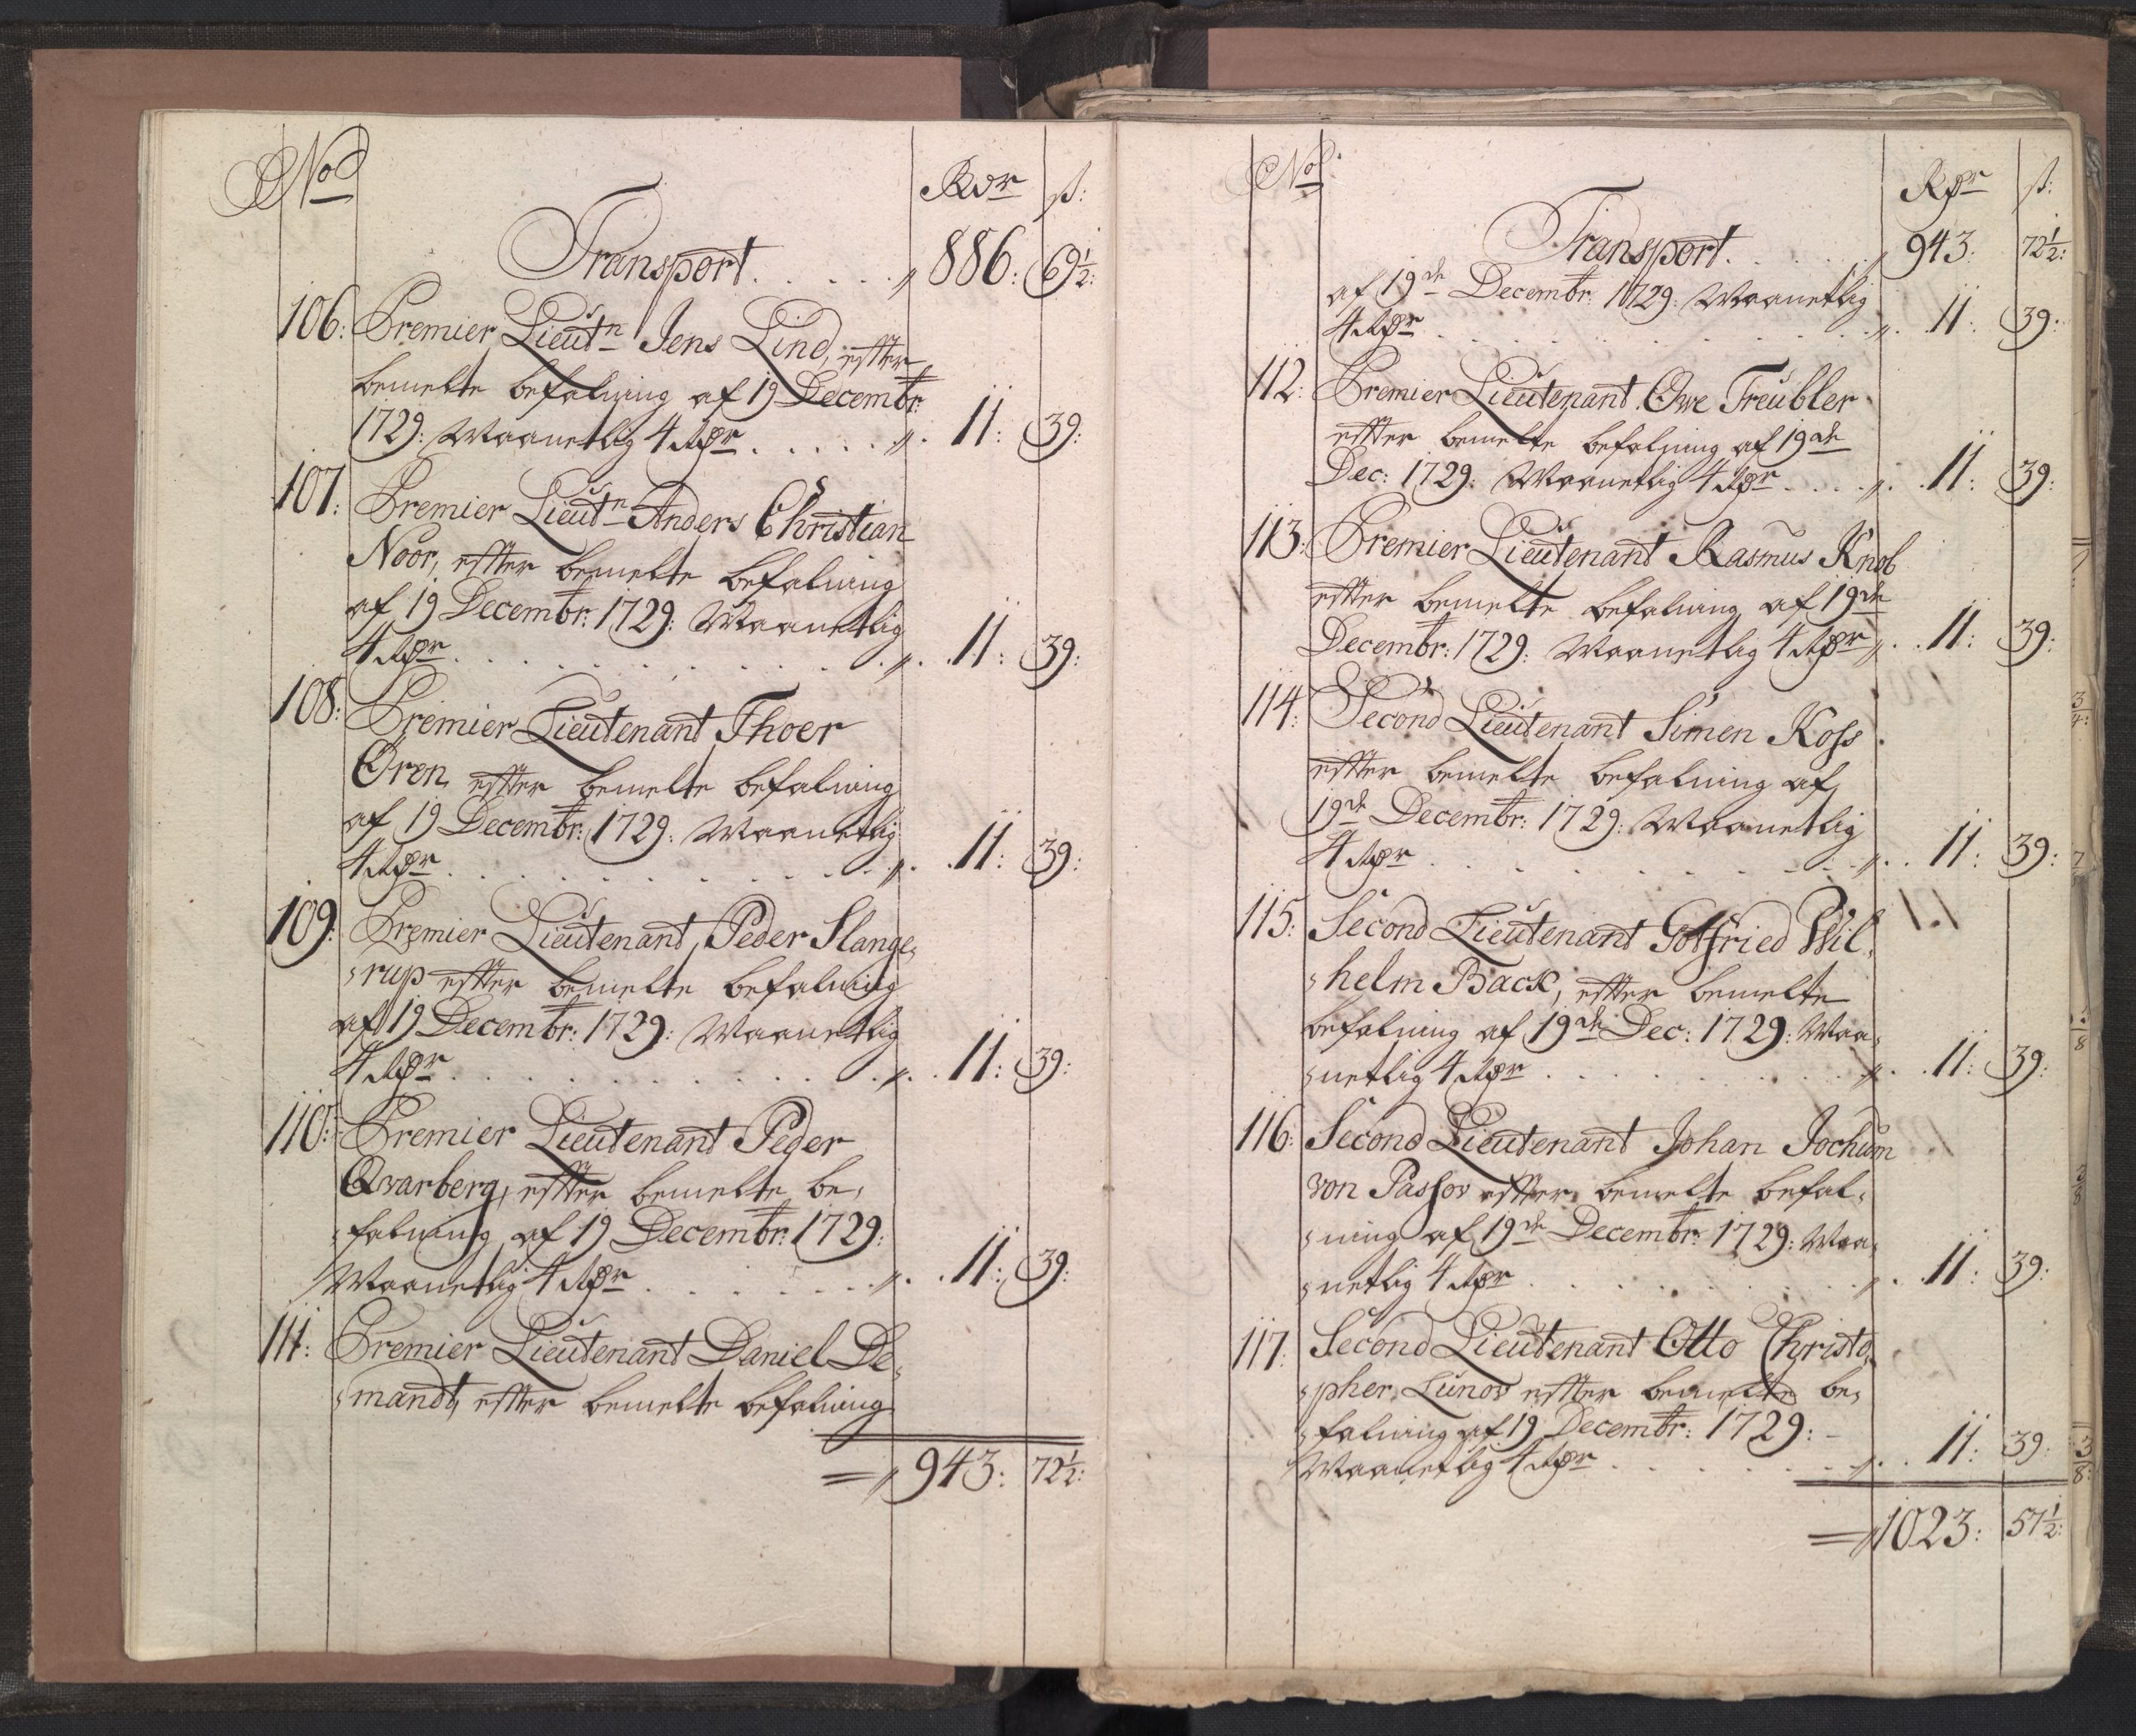 No
Rdr ß:
Transport. . . . . 886: 69½:
106: Premier Lieutn Jens Lind, efter
bemelte befalning af 19 Decembr:
1729: Maanetlig 4 Rdr . . . . . 11: 39:
107: Premier Lieutn Anders Christian
Noor, efter bemelte befalning
af 19 Decembr: 1729: Maanetlig
4 Rdr . . . . . 11: 39:
108: Premier Lieutenant Thoer
Oren, efter bemelte befalning
af 19 Decembr: 1729: Maanetlig
4 Rdr . . . . . 11: 39:
109: Premier Lieutenant, Peder Slange,
,rup efter bemelte befalning
af 19 Decembr: 1729: Maanetlig
4 Rdr . . . . . 11: 39:
110: Premier Lieutenant Peder
Qvarberg, efter bemelte be,
,falning af 19 Decembr: 1729:
Maanetlig 4 Rdr . . . . . 11: 39:
111: Premier Lieutenant Daniel De,
,mandt, efter bemelte befalning
= 943: 72½:
No
Rdr ß:
Transport. . . . . 943: 72½:
af 19de Decembr: 1729: Maanetlig
4 Rdr . . . . . 11: 39:
112: Premier Lieutenant Owe Treübler
efter bemelte befalning af 19de
Dec: 1729: Maanetlig 4 Rdr . . . . 11: 39:
113: Premier Lieutenant Rasmus Knob
efter bemelte befalning af 19de
Decembr: 1729: Maanetlig 4 Rdr . . 11: 39:
114: Second Lieutenant Simen Koss
efter bemelte befalning af
19de Decembr: 1729: Maanetlig
4 Rdr . . . . . 11: 39:
115: Second Lieutenant Gotfried Wil,
,helm Back, efter bemelte
befalning af 19de Dec: 1729: Maa,
,netlig 4 Rdr . . . . . 11: 39:
116: Second Lieutenant Johan Jochum
von Passov efter bemelte befal,
,ning af 19de Decembr: 1729: Maa,
,netlig 4 Rdr . . . . . 11: 39:
117: Second Lieutenant Otto Christo,
,pher Lünov efter bemelte be,
,falning af 19 Decembr: 1729:
Maanetlig 4 Rdr . . . . . 11: 39:
= 1023: 57½: